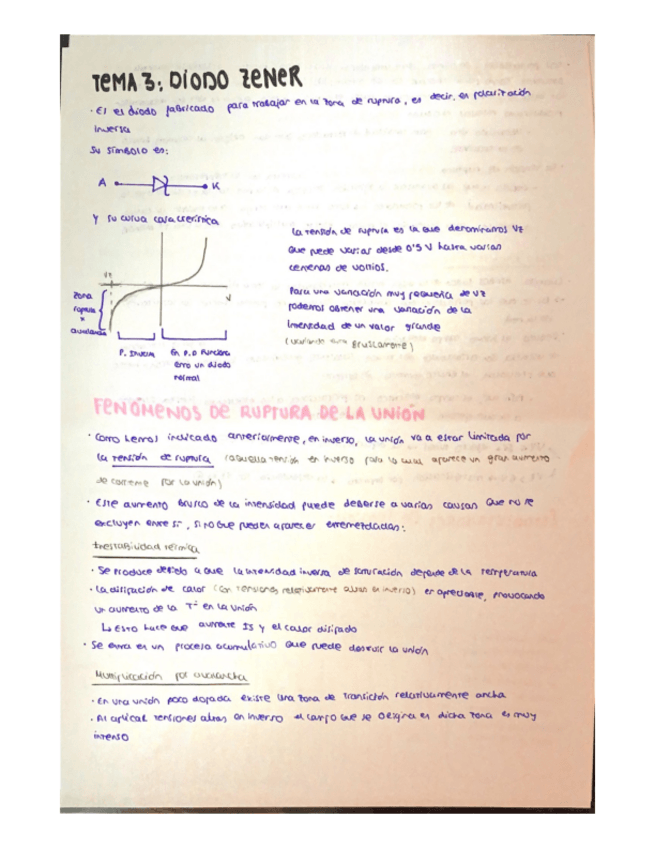 TEMA 3: DIODO ZENER
· Es el diodo fabricado para trabajar en la zona de ruptura, es decir, en polarización
inversa
Su símbolo es:
A K
Y su curva característica
La tensión de ruptura es la que denominamos Vz
que puede variar desde 0'5 V hasta varias
centenas de voltios.
Para una variación muy pequeña de Vz
podemos obtener una variación de la
Intensidad de un valor grande
(variando bruscamente)
Vz
V
Zona
ruptura
avalancha
P. Inversa
En P.D funciona
como un diodo
normal
FENÓMENOS DE RUPTURA DE LA UNIÓN
· Como hemos indicado anteriormente, en inverso, la unión va a estar limitada por
la tensión de ruptura (aquella tensión en inverso para la cual aparece un gran aumento
de corriente por la unión)
· Este aumento brusco de la intensidad puede deberse a varias causas que no se
excluyen entre sí, sino que pueden aparecer entremezcladas:
Inestabilidad térmica
· Se produce debido a que la intensidad inversa de saturación depende de la temperatura
· La disipación de calor (con tensiones relativamente altas en inverso) es apreciable, provocando
un aumento de la Tª en la unión
↳ Esto hace que aumente IS y el calor disipado
· Se entra en un proceso acumulativo que puede destruir la unión
Multiplicación por avalancha
· En una unión poco dopada existe una zona de transición relativamente ancha
· Al aplicar tensiones altas en inverso el campo que se origina en dicha zona es muy
intenso